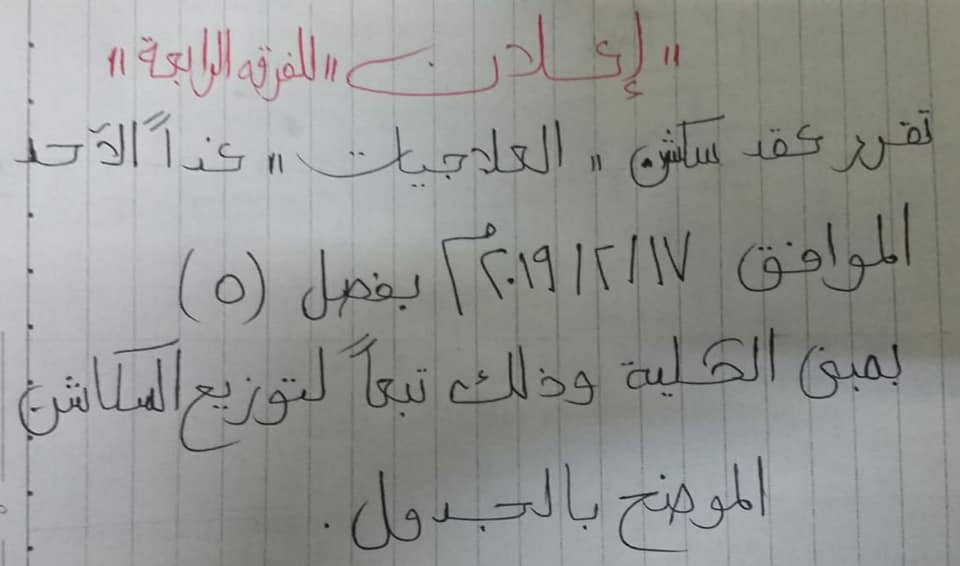 "إعلان" "للفرقه الرابعة"
تقرر عقد سكاشن "العلاجيات" غداً الآحد
الموافق ٢٠١٩/٢/١٧م بفصل (٥)
بمبنى الكلية وذلك تبعاً لتوزيع السكاشن
الموضح بالجدول.